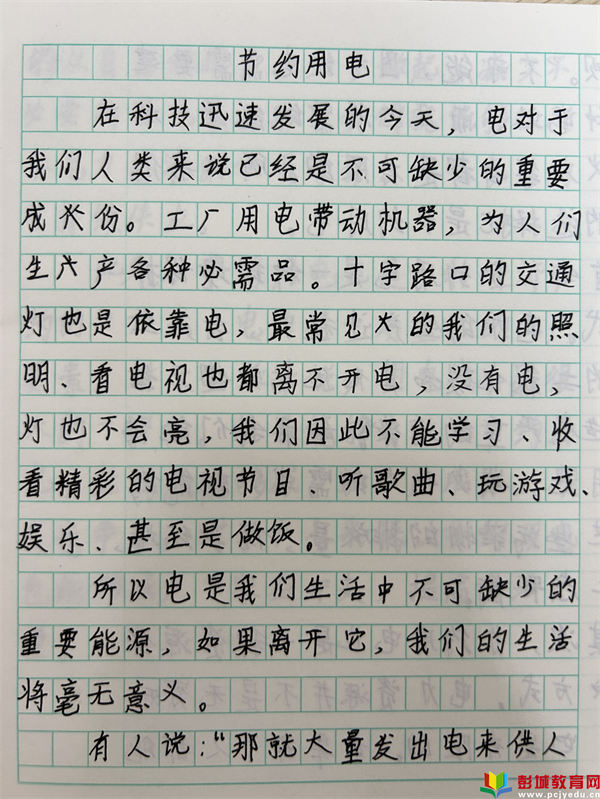 节约用电
在科技迅速发展的今天，电对于
我们人类来说已经是不可缺少的重要
成份。工厂用电带动机器，为人们
生产各种必需品。十字路口的交通
灯也是依靠电，最常见的我们的照
明、看电视也都离不开电，没有电，
灯也不会亮，我们因此不能学习、收
看精彩的电视节目、听歌曲、玩游戏、
娱乐、甚至是做饭。
所以电是我们生活中不可缺少的
重要能源，如果离开它，我们的生活
将毫无意义。
有人说：“那就大量发出电来供人
彭城教育网
www.pcjyedu.cn